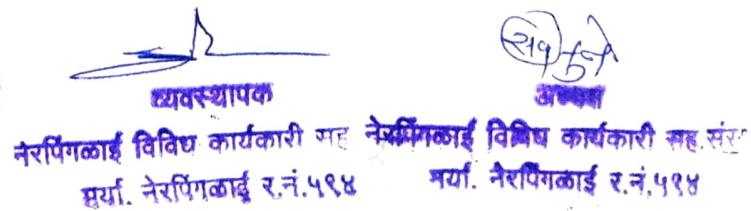 व्यवस्थापक
नेरपिंगळाई विविध कार्यकारी सह
मर्या. नेरपिंगळाई र.नं.५१४
अध्यक्ष
नेरपिंगळाई विविध कार्यकारी सह. संस
मर्या. नेरपिंगळाई र.नं.५१४